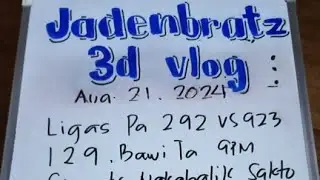 Jadenbratz
3d vlog :
Aug. 21. 2024
Ligas Pa 292 VS 923
129. Bawi Ta 9PM
Nakabalik Sakto